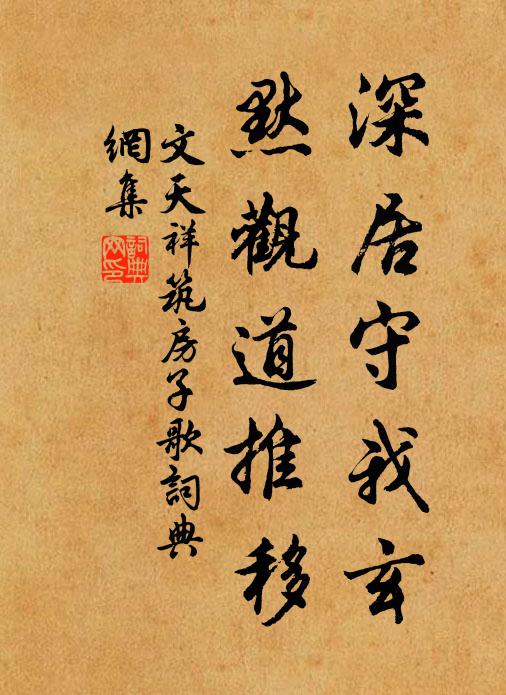 深居守我玄
默觀道推移
文天祥筑房子歌詞典
網集
詞典
网印